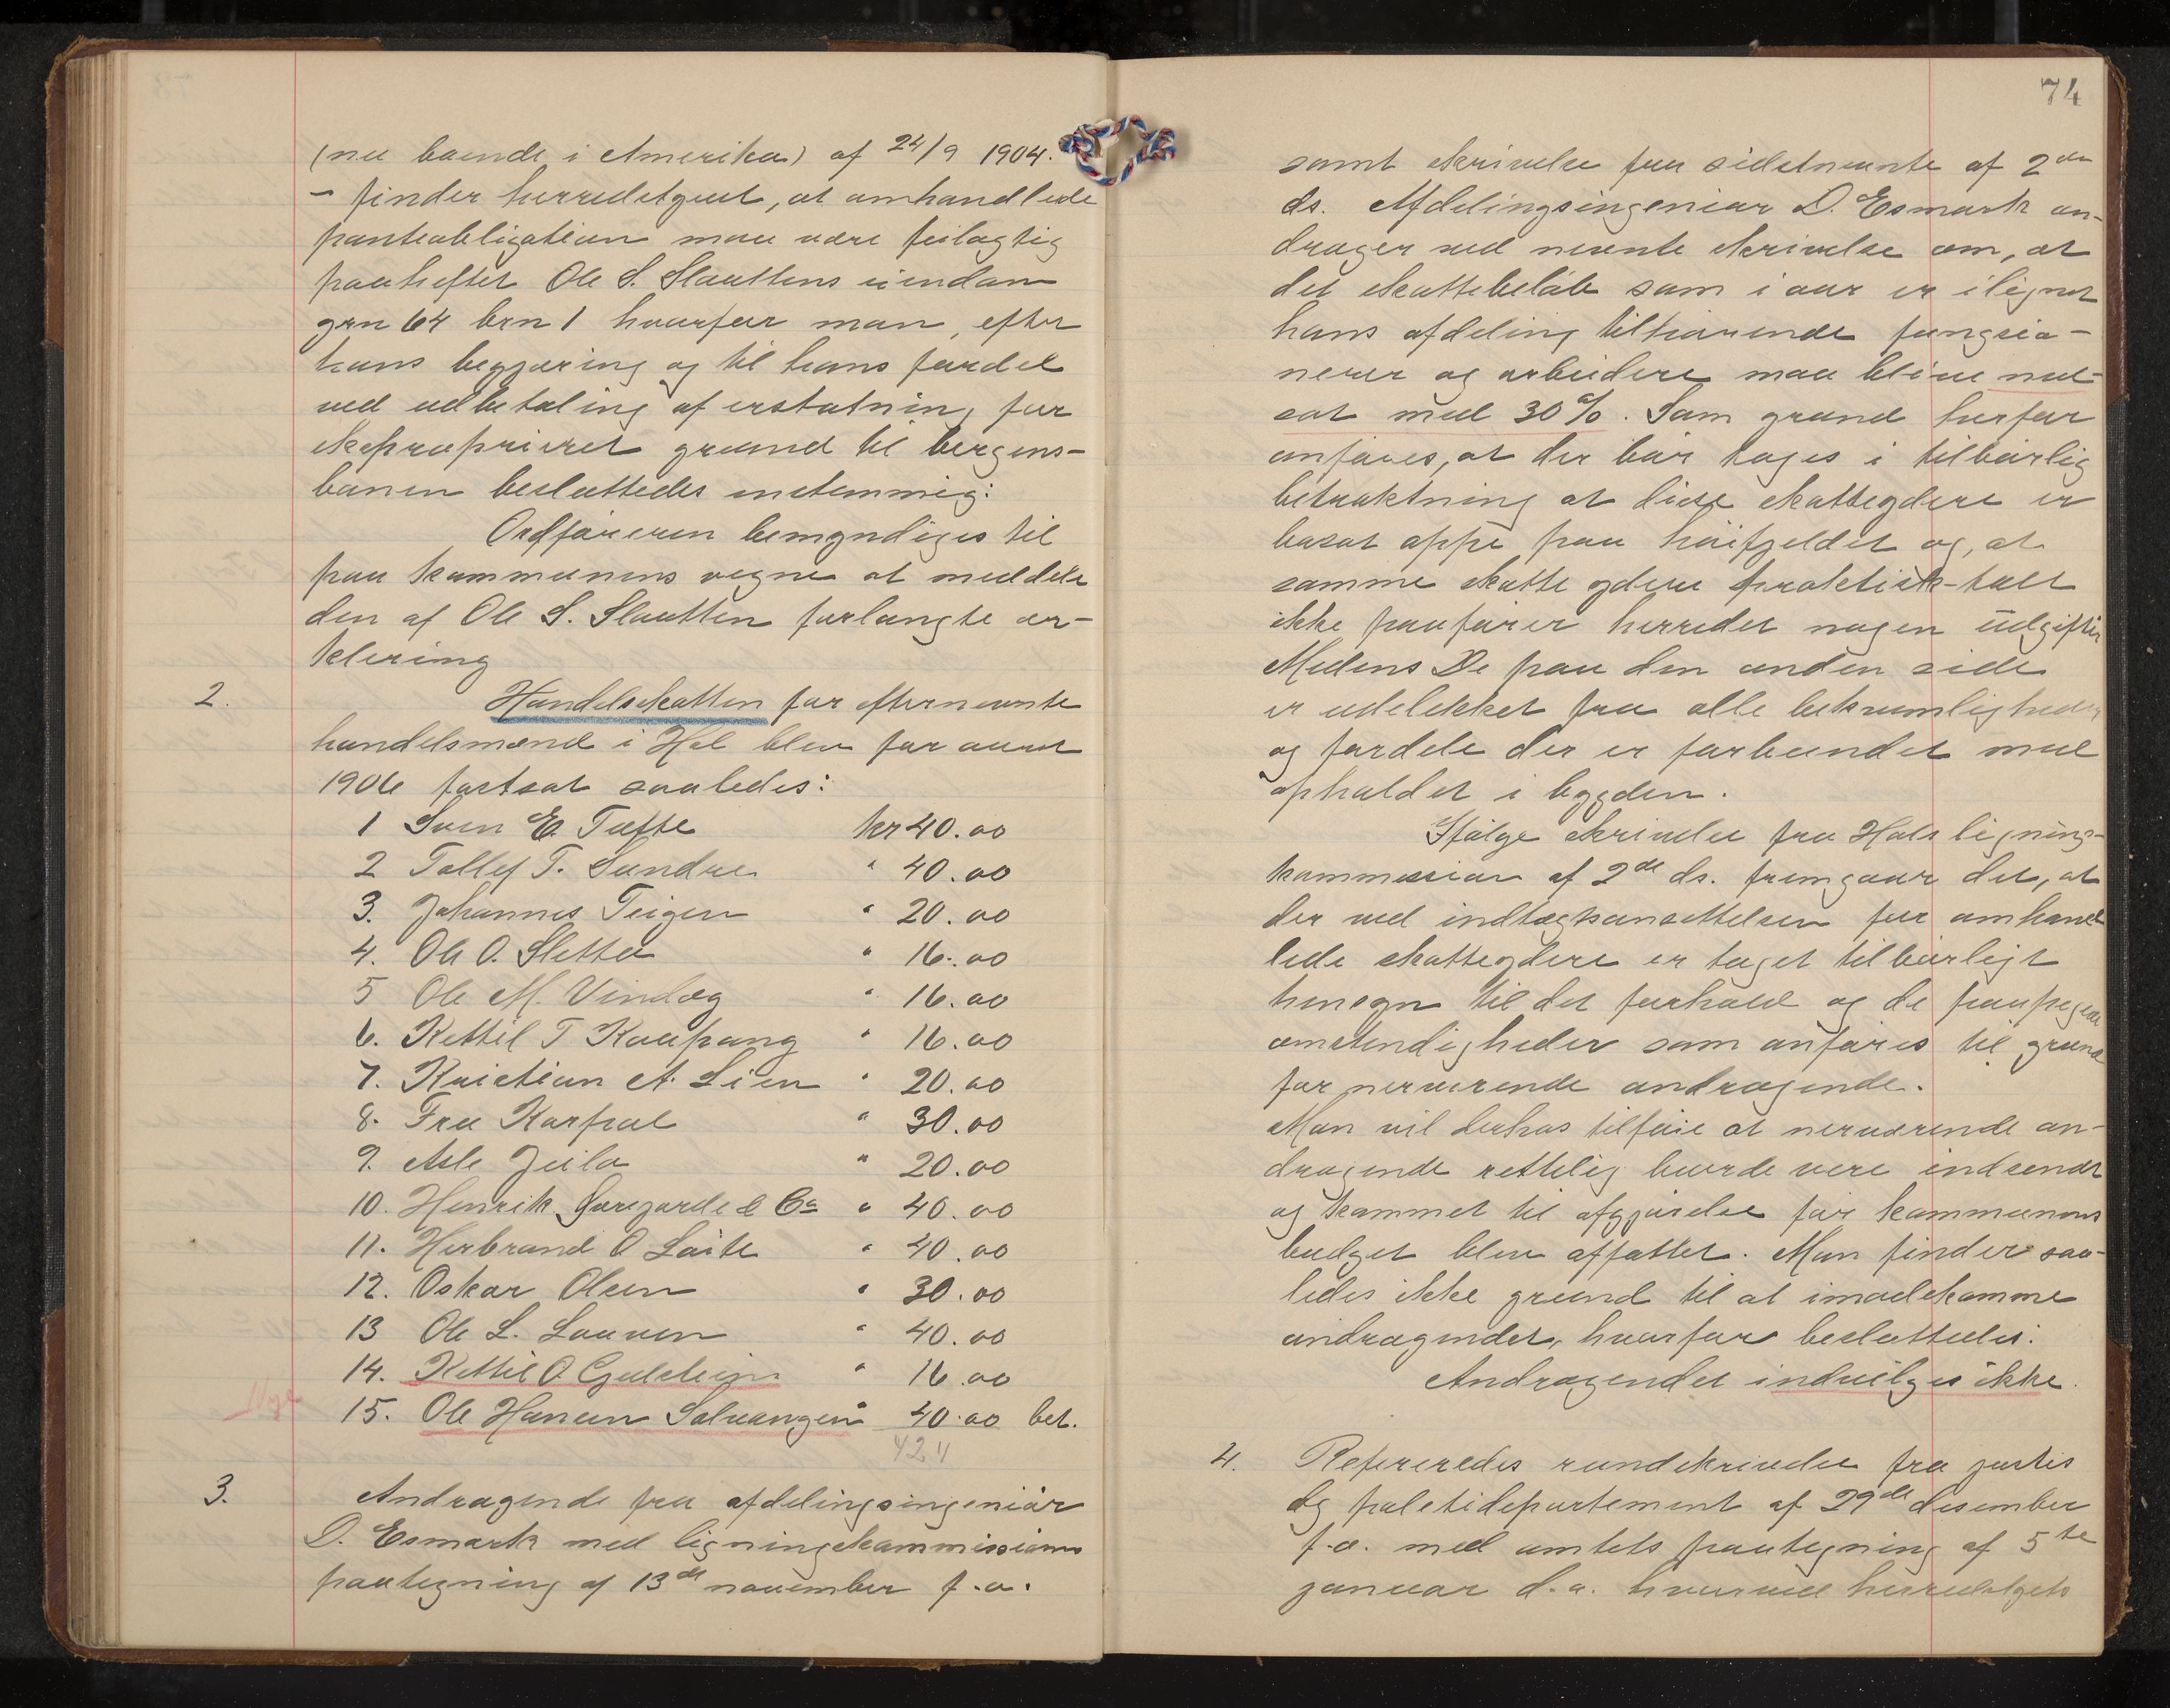 (nu boende i Amerika) af 24/9 1904.
– finder herredstyret, at omhandlede
panteobligation maa være feilagtig
paaheftet Ole S. Slaattens eiendom
grn 64 brn 1 hvorfor man, efter
hans begjæring og til hans fordel
ved udbetaling af erstatning for
ekspropriert grund til bergens-
banen besluttedes enstemmig:
Ordføreren bemyndiges til
paa kommunens vegne at meddele
den af Ole S. Slaatten forlangte er-
klering
2. Handelsskatten for efternevnte
handelsmænd i Hol blev for aaret
1906 fastsat saaledes:
1 Sven E. Tufte kr 40.00
2 Tollef T. Sundre " 40.00
3. Johannes Teigen " 20.00
4. Ole O. Sletto " 16.00
5 Ole M. Vindeg " 16.00
6. Kettil T Kaupang " 16.00
7. Kristian A. Lien " 20.00
8. Fru Karpal " 30.00
9. Asle Jeilo " 20.00
10. Henrik & Co " 40.00
11. Herbrand O Løite " 40.00
12. Oskar Olsen " 30.00
13 Ole L. Laaven " 40.00
14. Kettil O " 16.00
15. Ole Hansen Solvangen " 40.00 bet.
424
3. Andragende fra afdelingsingeniør
D. Esmark med ligningskommissions
paategning af 13de november f.a.
74
samt skrivelse fra sidstnevnte af 2den
ds. Afdelingsingeniør D. Esmark an-
drager ved nevnte skrivelse om, at
det skattebeløb som i aar er ilignet
hans afdeling tilhørende fungsio-
nerer og arbeidere maa blive ned-
sat med 30%. Som grund herfor
anføres, at der bør tages i tilbørlig
betraktning at disse skatteydere er
bosat oppe paa høifjeldet og, at
samme skatte ydere praktisk-talt
ikke paafører herredet nogen udgifter
Medens De paa den anden side
er udelukket fra alle bekvemligheder
og fordele der er forbundet med
opholdet i bygden.
Ifølge skrivelse fra Hols lignings-
kommission af 2de ds. fremgaar det, at
der ved indtægtsansettelsen for omhand
lede skatteydere er taget tilbørligt
hensyn til det forhold og de paapegede
omstendigheder som anføres til grund
for nerværende andragende.
Man vil derhos tilføie at nerværende an-
dragende rettelig burde vere indsendt
og kommet til afgjørelse før kommunens
budget blev affattet. Man finder saa-
ledes ikke grund til at imødekomme
andragendet, hvorfor besluttedes:
Andragendet indvilges ikke.
4. Refereredes rundskrivelse fra justis
og politidepartement af 29de desember
f.a. med amtets paategning af 5te
januar d.a. hvorved herredstyrets